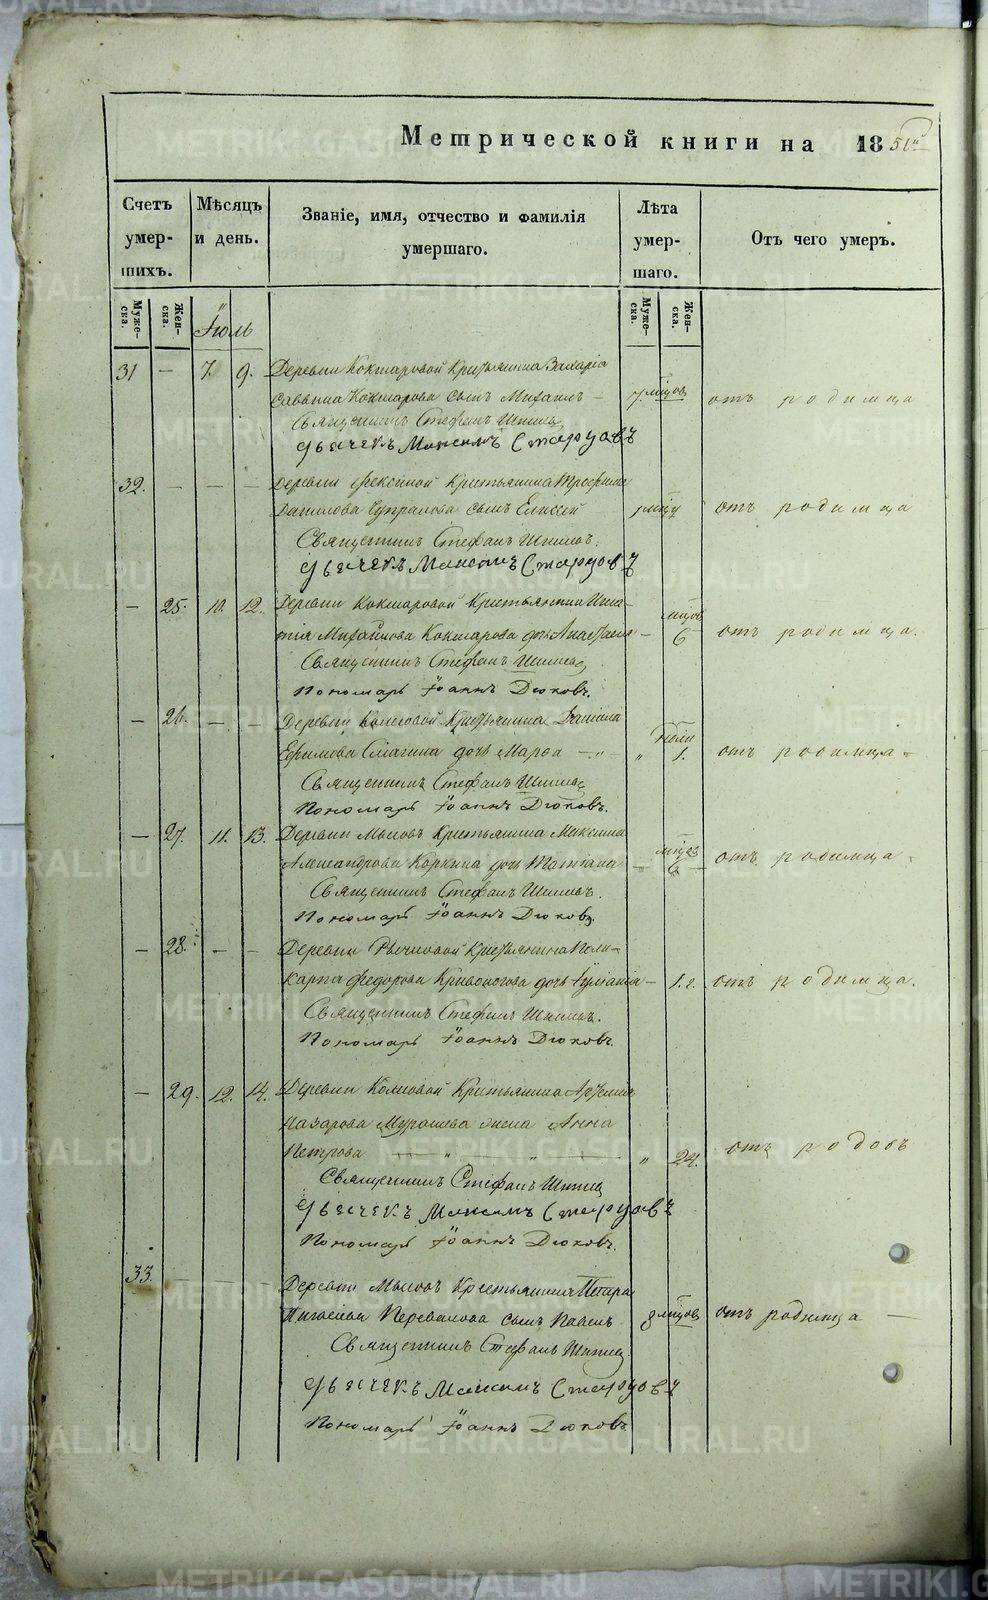 Метрической книги на 1851й
Счетъ умершихъ.
Мѣсяцъ и день.
Званіе, имя, отчество и фамилія умершаго.
Лѣта умершаго.
Отъ чего умеръ.
Мужеска. Женска. Іюль Мужеска. Женска.
31 — 7. 9. Деревни Кокшаровой Крестьянина Захарія
Саввина Кокшарова сынъ Михаилъ — 7 мѣсцов отъ родимца
Священникъ Стефанъ
Дьячекъ Максимъ Старцовъ
32. — — — Деревни Крестьянина Трофима
Данилова сынъ Елисей отъ родимца
Священникъ Стефанъ
Дьячекъ Максимъ Старцовъ
— 25. 10. 12. Деревни Кокшаровой Крестьянина Игна-
тія Михайлова Кокшарова дочь Анастасія — мѣсцов 6 отъ родимца.
Священникъ Стефанъ
Пономарь Іоаннъ Дюковъ.
— 26. — — Деревни Крестьянина Даніила
Ефимова дочь Марѳа — „ — „ 1. отъ родимца —
Священникъ Стефанъ
Пономарь Іоаннъ Дюковъ.
— 27. 11. 13. Деревни Мысовъ Крестьянина Максима
Александрова Коркина дочь Татіана мѣсцов 6 отъ родимца
Священникъ Стефанъ
Пономарь Іоаннъ Дюковъ
— 28. — — Деревни Крестьянина Поли-
карпа Федорова Кривоногова дочь Іуліанія — 1. г. отъ родимца.
Священникъ Стефанъ
Пономарь Іоаннъ Дюковъ.
— 29. 12. 14. Деревни Крестьянина
Назарова жена Анна
Петрова — „ — „ — „ 24. отъ родовъ
Священникъ Стефанъ
Дьячекъ Максимъ Старцовъ
Пономарь Іоаннъ Дюковъ.
33. Деревни Мысовъ Крестьянина Петра
Перевалова сынъ Павелъ 3 мѣсцов отъ родимца —
Священникъ Стефанъ
Дьячекъ Максимъ Старцовъ
Пономарь Іоаннъ Дюковъ.
METRIKI.GASO-URAL.RU